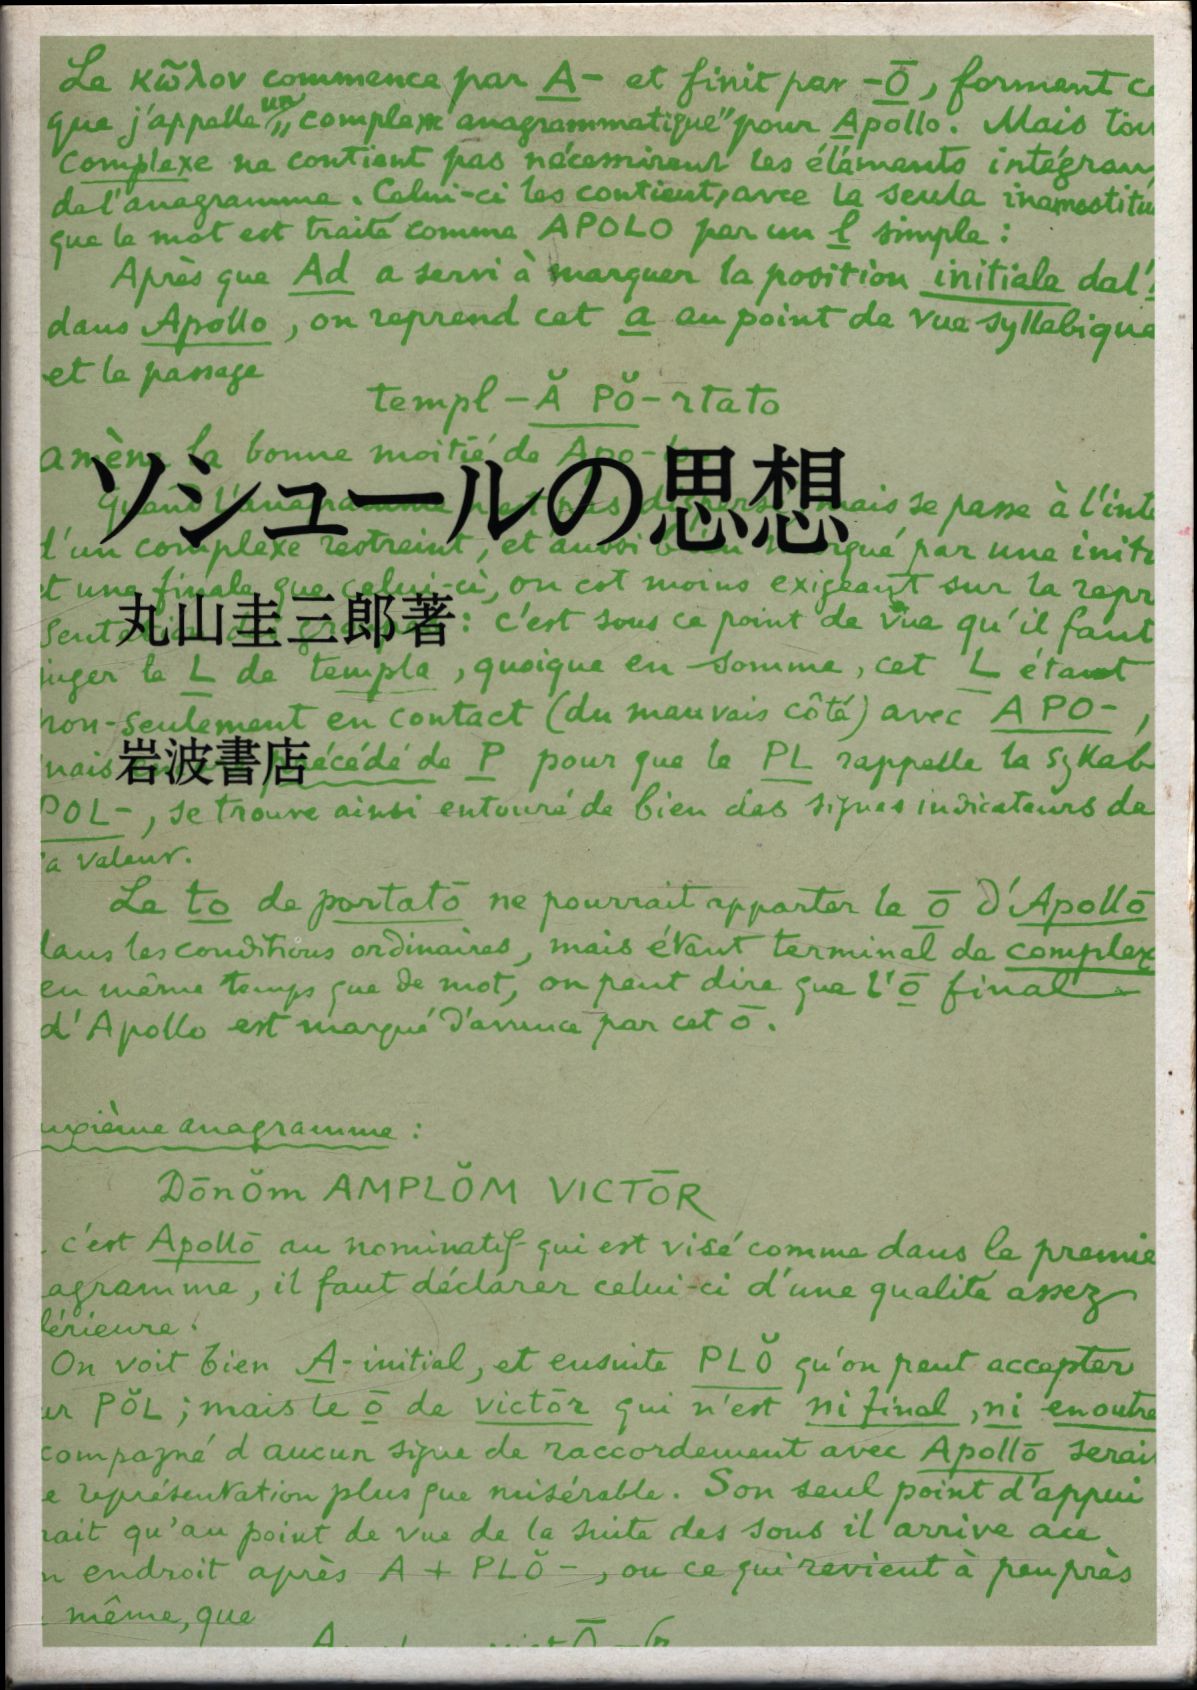 Le κῶλον commence par A- et finit par -Ō, forment ce
que j'appelle un "complexe anagrammatique" pour Apollo. Mais tou
complexe ne contient pas nécessairement les éléments intégran
de l'anagramme. Celui-ci les contient, avec la seule
que le mot est traité comme APOLO par un l simple :
Après que Ad a servi à marquer la position initiale de l'
dans Apollo, on reprend cet a au point de vue syllabique
et le passage
templ-Ă PŎ-rtato
amène la bonne moitié de Apo-
ソシュールの思想
Quand l'anagramme n'est pas mais se passe à l'inte
d'un complexe restreint, et aussi bien marqué par une initi
et une finale que celui-ci, on est moins exigeant sur la repr
丸山圭三郎著
: c'est sous ce point de vue qu'il faut
juger le L de templa, quoique en somme, cet L étant
non-seulement en contact (du mauvais côté) avec APO-,
岩波書店
mais précédé de P pour que le PL rappelle la syllab
POL-, se trouve ainsi entouré de bien des signes indicateurs de
sa valeur.
Le to de portatō ne pourrait apporter le ō d'Apollō
dans les conditions ordinaires, mais étant terminal de complex
en même temps que de mot, on peut dire que l'ō final
d'Apollo est marqué d'avance par cet ō.
uxième anagramme :
Dōnŏm AMPLŎM VICTŌR
c'est Apollō au nominatif qui est visé comme dans le premie
agramme, il faut déclarer celui-ci d'une qualité assez
férieure.
On voit bien A-initial, et ensuite PLŎ qu'on peut accepter
ur PŎL ; mais le ō de victōr qui n'est ni final, ni en outre
compagné d'aucun signe de raccordement avec Apollō serai
e représentation plus que misérable. Son seul point d'appui
rait qu'au point de vue de la suite des sons il arrive au
n endroit après A + PLŎ-, ou ce qui revient à peu près
même, que